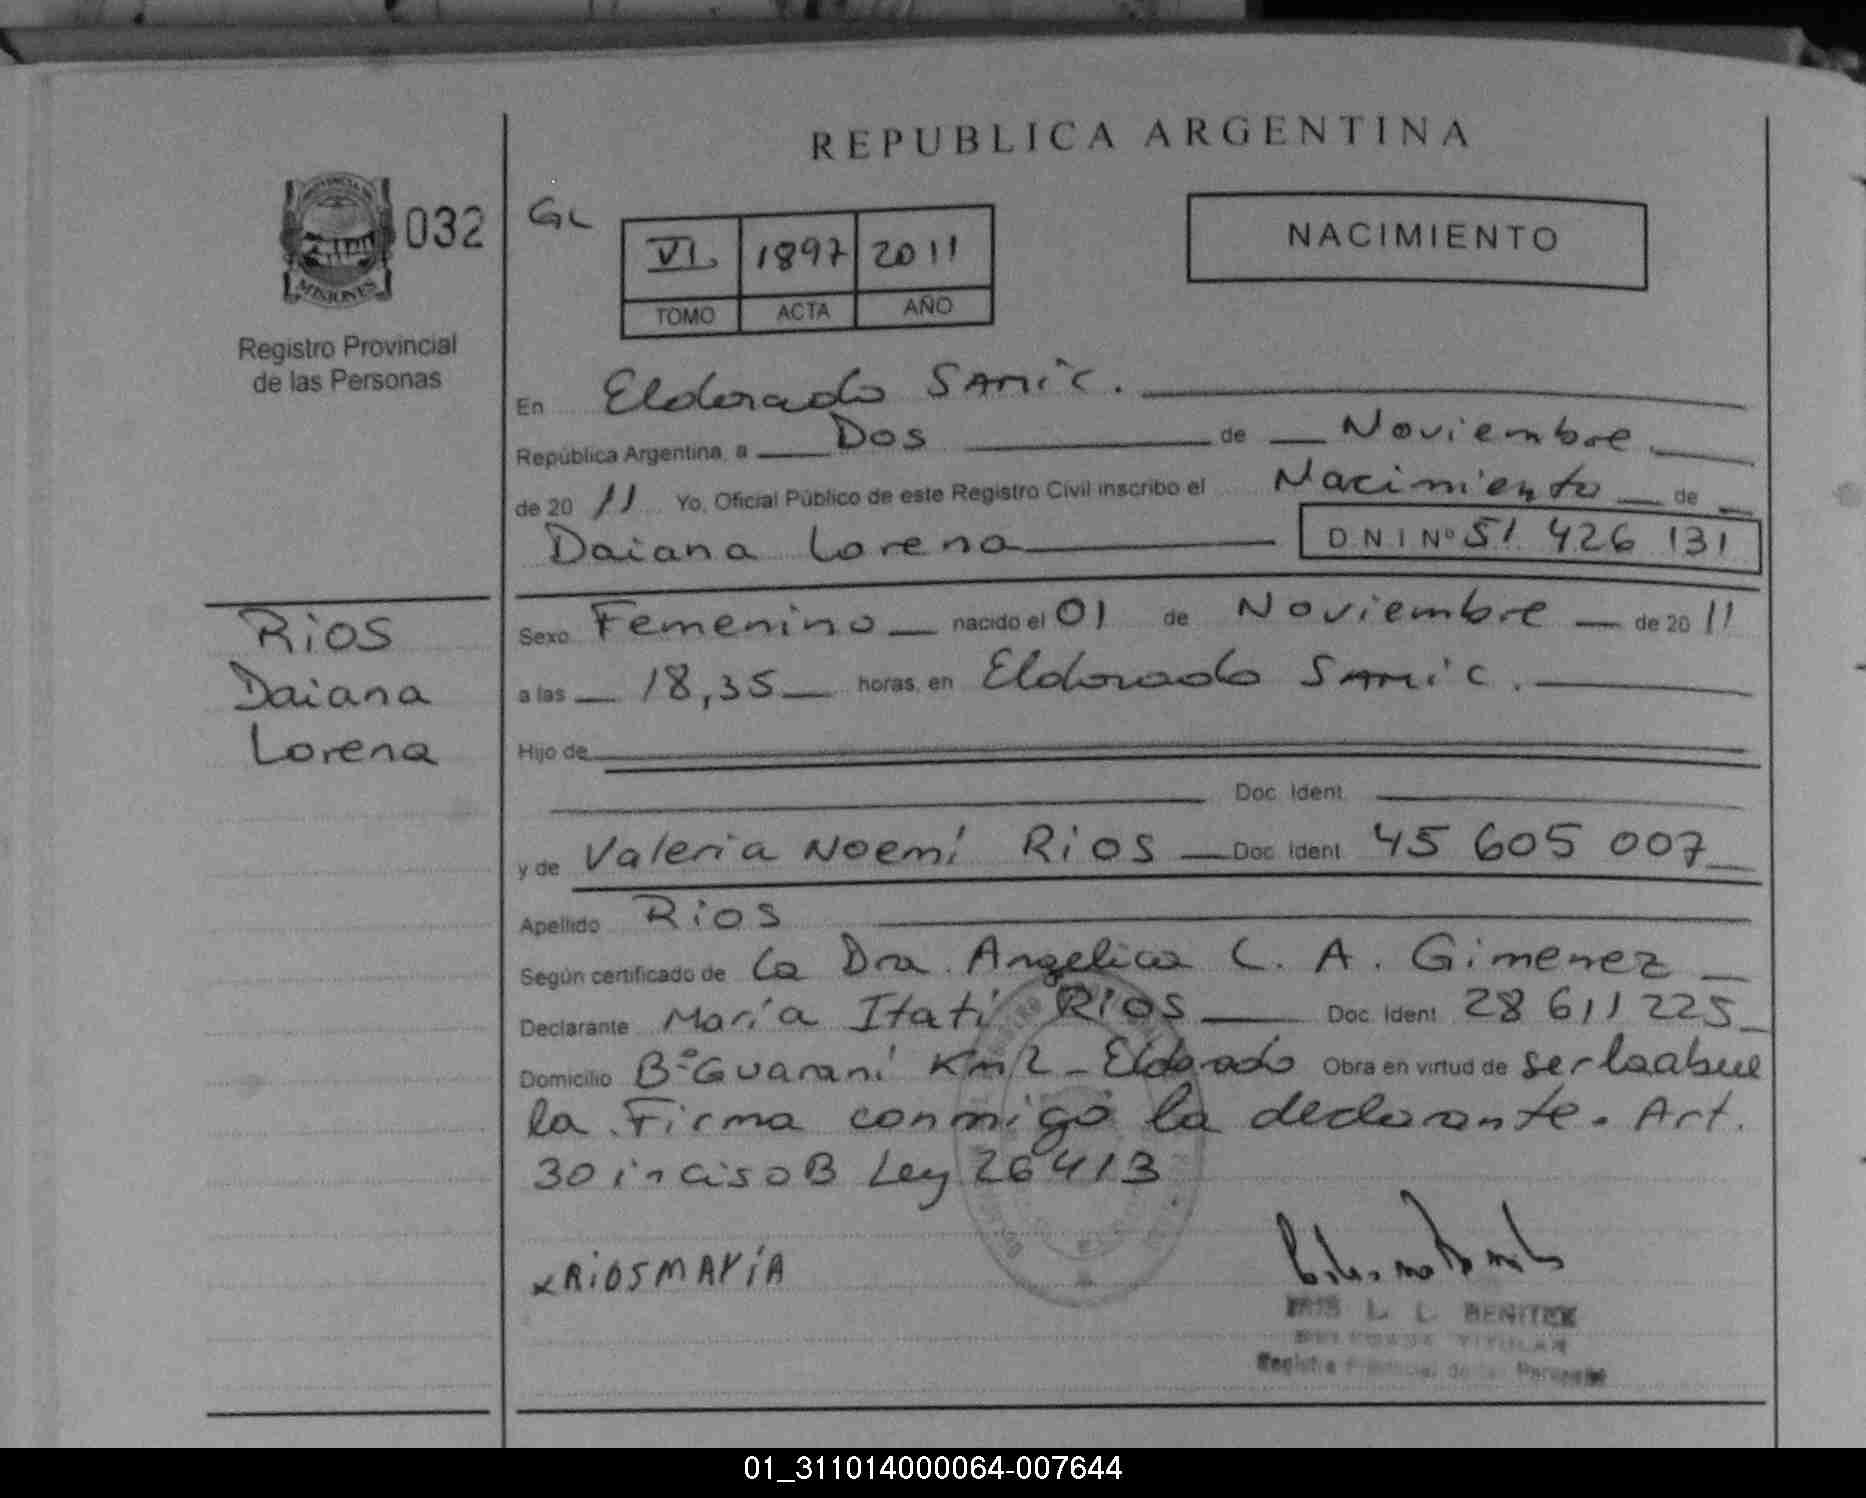 REPUBLICA ARGENTINA
PROVINCIA DE
MISIONES
032
Registro Provincial
de las Personas
GL
NACIMIENTO
VI 1897 2011
TOMO ACTA AÑO
En Eldorado SAMiC.
República Argentina, a Dos de Noviembre
de 20 11 Yo, Oficial Público de este Registro Civil inscribo el Nacimiento de
Daiana Lorena D N I Nº 51 426 131
Rios
Daiana
Lorena
Sexo Femenino nacido el 01 de Noviembre de 20 11
a las 18,35 horas, en Eldorado SAMiC.
Hijo de
Doc. Ident.
y de Valeria Noemí Rios Doc. Ident. 45 605 007
Apellido Rios
Según certificado de la Dra. Angelica C. A. Gimenez
Declarante María Itatí Rios Doc. Ident. 28 611 225
Domicilio Bº Guaraní Km 2 - Eldorado Obra en virtud de ser la abue
la. Firma conmigo la declarante. Art.
30 inciso B Ley 26413
x RiOS MARíA
L. BENITEZ
TITULAR
Registro Provincial de las Personas
01_311014000064-007644